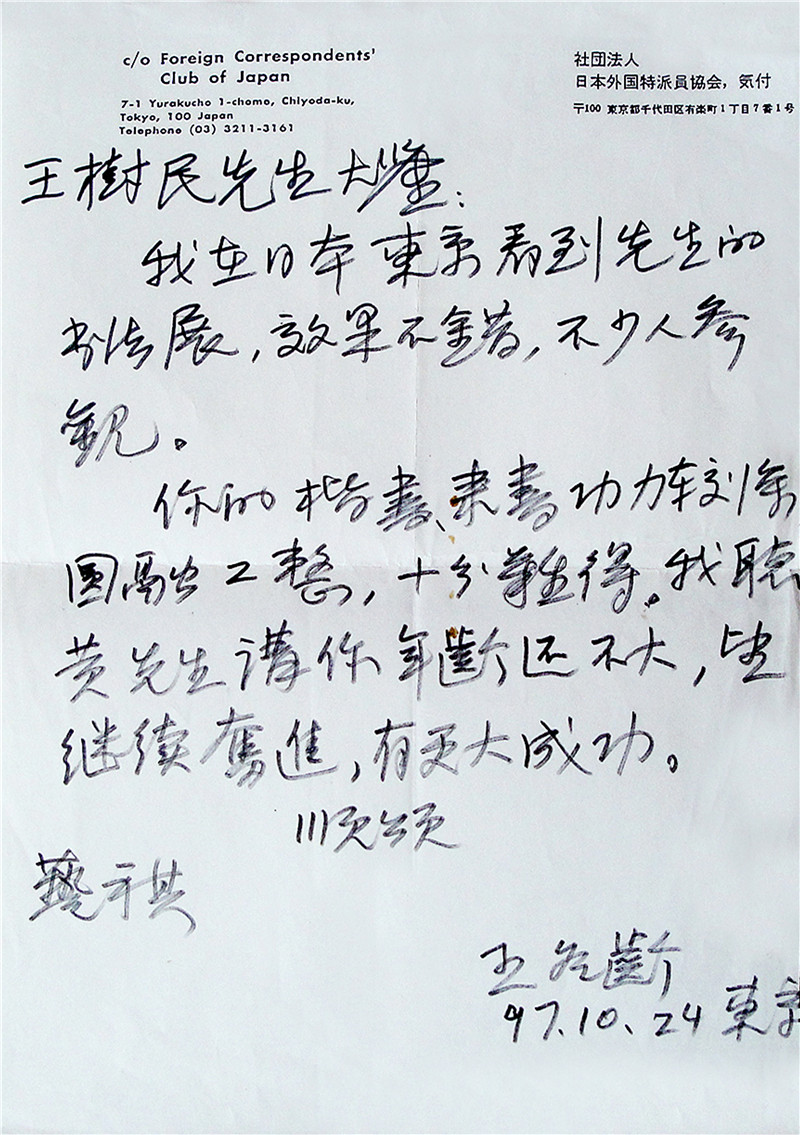 c/o Foreign Correspondents'
Club of Japan
7-1 Yurakucho 1-chomo, Chiyoda-ku,
Tokyo, 100 Japan
Telephone (03) 3211-3161
社団法人
日本外国特派員協会，気付
〒100 東京都千代田区有楽町1丁目7番1号
王樹民先生大鉴：
我在日本東京看到先生的
书法展，效果不錯，不少人参
觀。
你的楷書、隶書功力较深
圆融工整，十分難得。我聽
黄先生講你年齡还不大，望
继续奮進，有更大成功。
顺颂
藝祺
王冬齡
97.10.24 東京